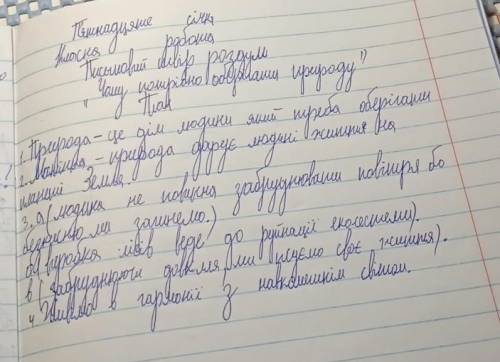 П'ятнадцяте січня
Класна робота
Письмовий твір роздум
"Чому потрібно оберігати природу"
План
1. Природа – це дім людини який треба оберігати
2. – природа дарує людині життя на
планції Земля.
3. а(людина не повинна забруднювати повітря бо
ми загинемо.)
б(вирубка лісів веде до руйнації екосестеми).
в (забруднюючи довкілля ми псуємо своє життя).
4. Живемо в гармонії з навколишнім світом.